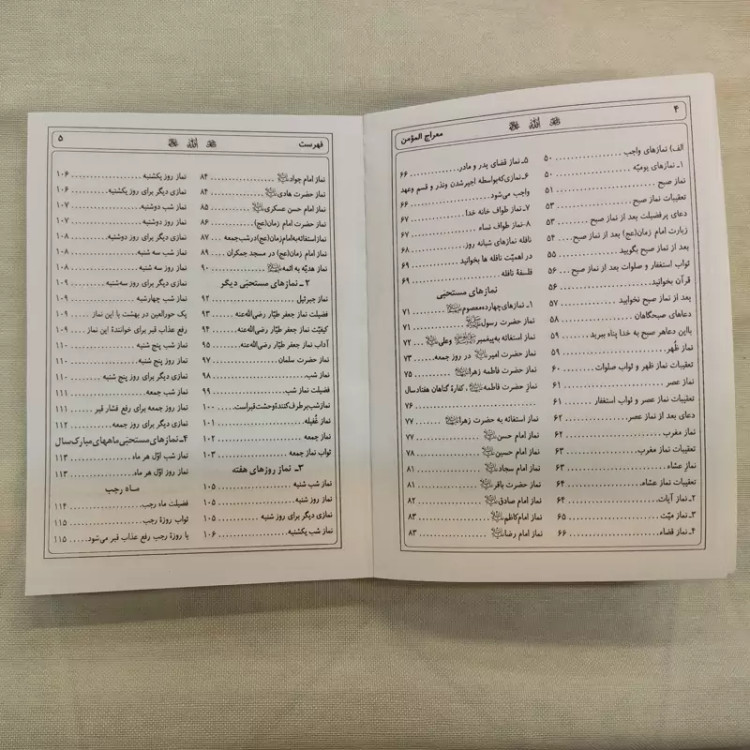 ۴
معراج المؤمن
الف) نمازهای واجب ۵۰
۱ـ نمازهای یومیّه ۵۰
نماز صبح ۵۱
تعقیبات نماز صبح ۵۳
دعای پرفضیلت بعد از نماز صبح ۵۳
زیارت امام زمان(عج) بعد از نماز صبح ۵۴
بعد از نماز صبح بگویید ۵۵
ثواب استغفار و صلوات بعد از نماز صبح ۵۶
قرآن بخوانید ۵۶
بعد از نماز صبح نخوابید ۵۷
دعاهای صبحگاهان ۵۸
بااین دعاهر صبح به خدا پناه ببرید ۵۹
نماز ظُهر ۵۹
تعقیبات نماز ظهر و ثواب صلوات ۶۰
نماز عصر ۶۱
تعقیبات نماز عصر و ثواب استغفار ۶۱
دعای بعد از نماز عصر ۶۲
نماز مغرب ۶۲
تعقیبات نماز مغرب ۶۳
نماز عشاء ۶۳
تعقیبات نماز عشاء ۶۴
۲ـ نماز آیات ۶۴
۳ـ نماز میّت ۶۵
۴ـ نماز قضاء ۶۶
۵ـ نماز قضای پدر و مادر ۶۶
۶ـ نمازی‌که بواسطه اجیرشدن ونذر و قسم وعهد
واجب می‌شود ۶۶
۷ـ نماز طواف خانه خدا ۶۷
۸ـ نماز طواف نساء ۶۷
نافله نمازهای شبانه روز ۶۸
در اهمیّت نافله ها بخوانید ۶۹
فلسفهٔ نافله ۶۹
نمازهای مستحبّی
۱ـ نمازهای‌چهارده‌معصوم ۷۱
نماز حضرت رسول ۷۱
نماز استغاثه به‌پیغمبر وعلی ۷۲
نماز حضرت امیر در روز جمعه ۷۳
نماز حضرت فاطمه زهرا ۷۵
نماز حضرت فاطمه، کفارهٔ گناهان هفتادسال
۷۶
نماز استغاثه به حضرت زهرا ۷۷
نماز امام حسن ۷۷
نماز امام حسین ۷۸
نماز امام سجاد ۸۱
نماز حضرت باقر ۸۱
نماز امام صادق ۸۲
نماز امام‌کاظم ۸۳
نماز امام رضا ۸۳
فهرست
۵
نماز امام جواد ۸۴
نماز حضرت هادی ۸۴
نماز امام حسن عسکری ۸۵
نماز حضرت امام زمان(عج) ۸۶
نماز استغاثه به‌امام‌زمان(عج)درشب‌جمعه ۸۷
نماز امام زمان(عج) در مسجد جمکران ۸۹
نماز هدیّه به ائمه ۹۰
۲ـ نمازهای مستحبّی دیگر
نماز جبرئیل ۹۲
فضیلت نماز جعفر طیّار رضی‌الله‌عنه ۹۳
کیفیّت نماز جعفر طیّار رضی‌الله‌عنه ۹۴
آداب نماز جعفر طیّار رضی‌الله‌عنه ۹۵
نماز حضرت سلمان ۹۷
نماز شب ۹۸
فضیلت نماز شب ۹۹
نمازشب‌برطرف‌کنندئوحشت‌قبراست ۱۰۰
نماز غُفیله ۱۰۱
نماز جمعه ۱۰۲
ثواب نماز جمعه ۱۰۳
۳ـ نماز روزهای هفته
نماز شب شنبه ۱۰۵
نماز روز شنبه ۱۰۵
نمازی دیگر برای روز شنبه ۱۰۵
نماز شب یکشنبه ۱۰۶
نماز روز یکشنبه ۱۰۶
نمازی دیگر برای روز یکشنبه ۱۰۶
نماز شب دوشنبه ۱۰۷
نماز روز دوشنبه ۱۰۷
نمازی دیگر برای روز دوشنبه ۱۰۸
نماز شب سه شنبه ۱۰۸
نماز روز سه شنبه ۱۰۸
نمازی دیگر برای روز سه‌شنبه ۱۰۹
نماز شب چهارشبه ۱۰۹
یک حورالعین در بهشت با این نماز ۱۰۹
رفع عذاب قبر برای خوانندهٔ این نماز ۱۰۹
نماز شب پنج شنبه ۱۱۰
نماز روز پنج شنبه ۱۱۰
نمازی دیگر برای روز پنج شنبه ۱۱۰
نماز شب جمعه ۱۱۱
نماز روز جمعه برای رفع فشار قبر ۱۱۱
نمازی دیگر برای روز جمعه ۱۱۲
۴ـ نمازهای مستحبّی ماههای مبارک سال
نماز شب اوّل هر ماه ۱۱۳
نماز روز اوّل هر ماه ۱۱۳
ماه رجب
فضیلت ماه رجب ۱۱۴
ثواب روزهٔ رجب ۱۱۵
با روزهٔ رجب رفع عذاب قبر می‌شود ۱۱۵